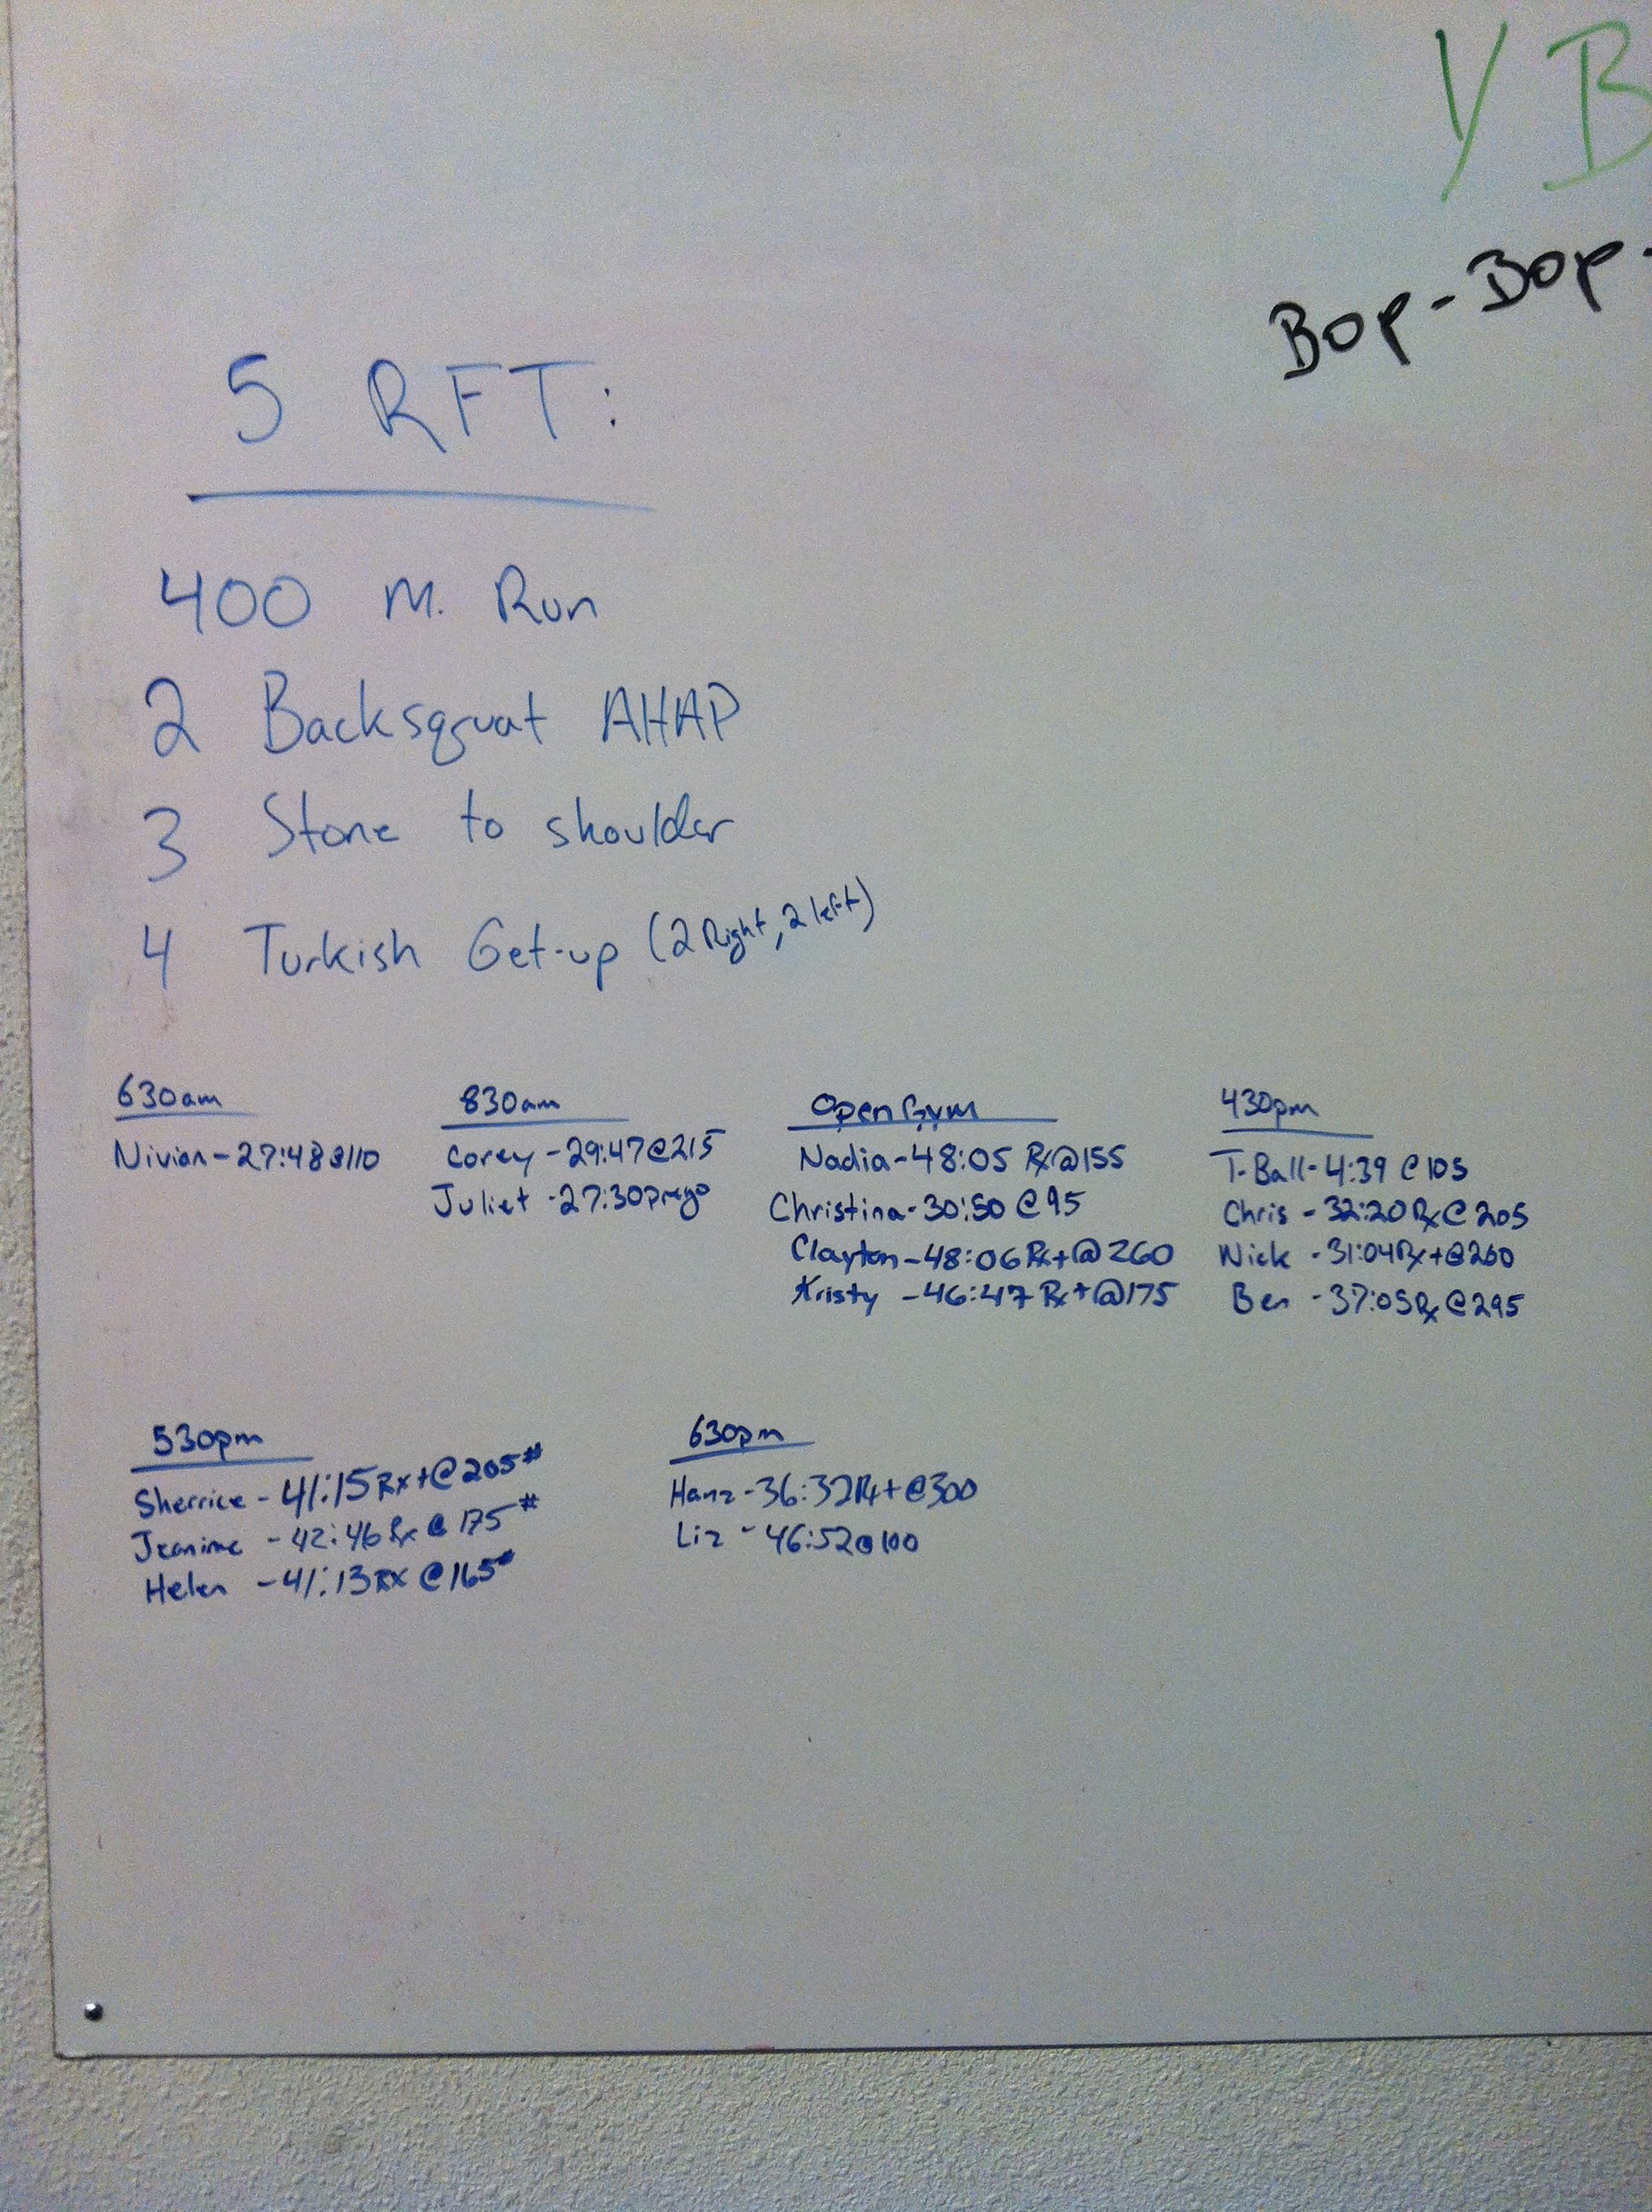 Y B
Bop-Bop-
5 RFT:
400 M. Run
2 Backsquat AHAP
3 Stone to shoulder
4 Turkish Get-up (2 Right, 2 left)
630am
Nivian-27:48@110
830am
Corey-29:47@215
Juliet-27:30prego
Open Gym
Nadia-48:05 Rx@155
Christina-30:50@95
Clayton-48:06Rx+@260
Kristy-46:47Rx+@175
430pm
T-Ball-4:39@105
Chris-32:20Rx@205
Nick-31:04Rx+@260
Ben-37:05Rx@295
530pm
Sherrice-41:15Rx+@205#
Jeanine-42:46Rx@175#
Helen-41:13RX@165#
630pm
Hanz-36:32Rx+@300
Liz-46:52@100